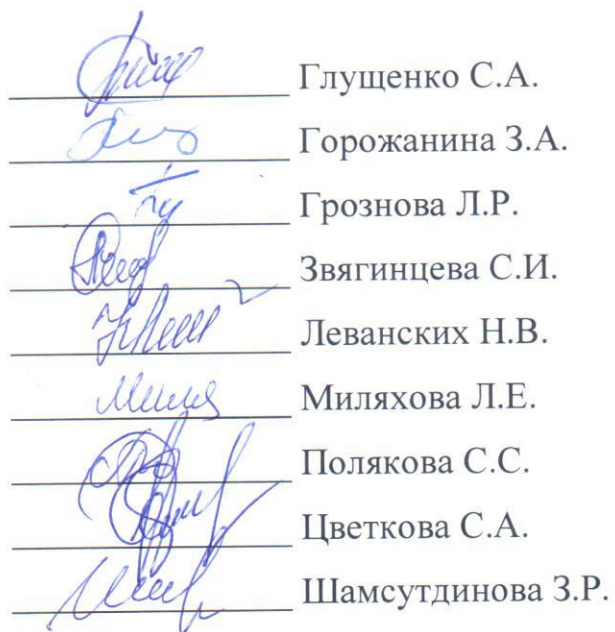 Глущенко С.А.
Горожанина З.А.
Грознова Л.Р.
Звягинцева С.И.
Леванских Н.В.
Миляхова Л.Е.
Полякова С.С.
Цветкова С.А.
Шамсутдинова З.Р.